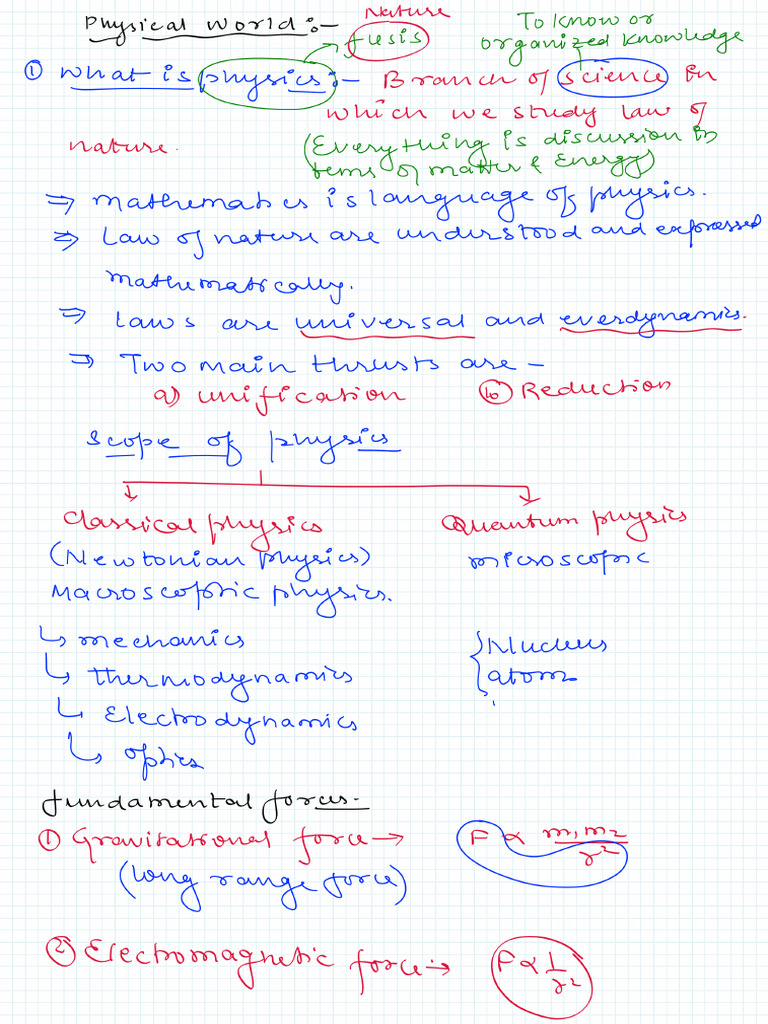 Physical world :-
Nature
fusis
To know or
organized knowledge
① What is physics :- Branch of science in
which we study law of
nature.
(Everything is discussion in
terms of matter & Energy)
⇒ Mathematics is language of physics.
⇒ Law of nature are understood and expressed
mathematically.
⇒ Laws are universal and everdynamics.
⇒ Two main thrusts are –
a) unification ⓑ Reduction
Scope of physics
Classical physics Quantum physics
(Newtonian physics) microscopic
Macroscopic physics.
↳ mechanics { Nucleus
↳ thermodynamics { atom
↳ Electrodynamics
↳ optics
fundamental forces.
① Gravitational force → F ∝ m₁m₂/r²
(long range force)
② Electromagnetic force → F ∝ 1/r²